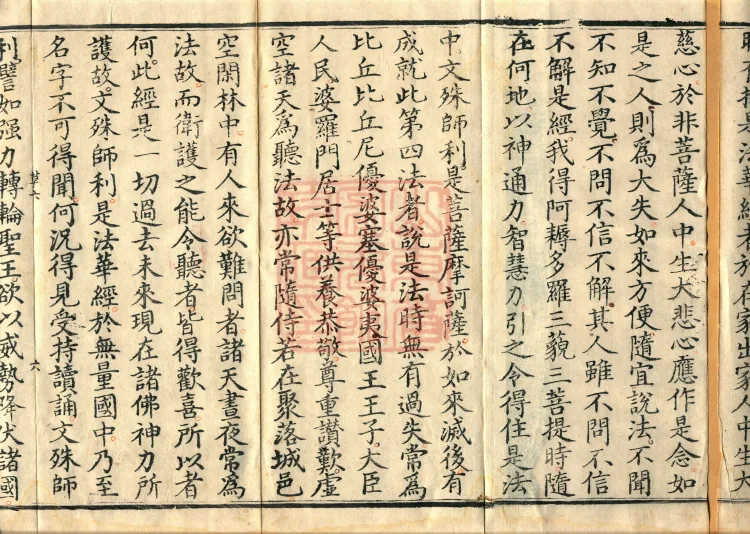 時有持是法華經者於在家出家人中生大
慈心於非菩薩人中生大悲心應作是念如
是之人則爲大失如來方便隨宜說法不聞
不知不覺不問不信不解其人雖不問不信
不解是經我得阿耨多羅三藐三菩提時隨
在何地以神通力智慧力引之令得住是法
中文殊師利是菩薩摩訶薩於如來滅後有
成就此第四法者說是法時無有過失常爲
比丘比丘尼優婆塞優婆夷國王王子大臣
人民婆羅門居士等供養恭敬尊重讚歎虛
空諸天爲聽法故亦常隨侍若在聚落城邑
空閑林中有人來欲難問者諸天晝夜常爲
法故而衛護之能令聽者皆得歡喜所以者
何此經是一切過去未來現在諸佛神力所
護故文殊師利是法華經於無量國中乃至
名字不可得聞何況得見受持讀誦文殊師
六
利譬如强力轉輪聖王欲以威勢降伏諸國